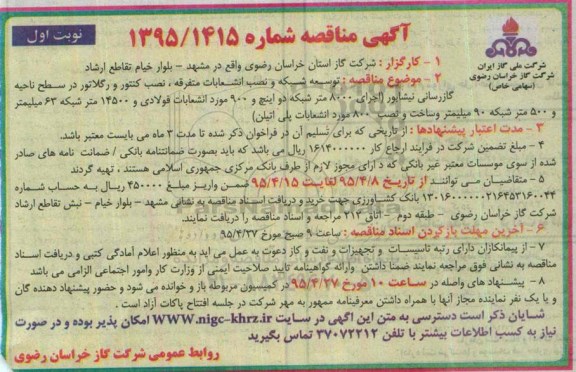 آگهی مناقصه شماره ۱۳۹۵/۱۴۱۵
نوبت اول
شرکت ملی گاز ایران
شرکت گاز خراسان رضوی
(سهامی خاص)
۱ - کارگزار : شرکت گاز استان خراسان رضوی واقع در مشهد - بلوار خیام تقاطع ارشاد
۲ - موضوع مناقصه : توسعه شبکه و نصب انشعابات متفرقه ، نصب کنتور و رگلاتور در سطح ناحیه
گازرسانی نیشابور (اجرای ۸۰۰۰ متر شبکه دو اینچ و ۹۰۰ مورد انشعابات فولادی و ۱۴۵۰۰ متر شبکه ۶۳ میلیمتر
و ۵۰۰ متر شبکه ۹۰ میلیمتر وساخت و نصب ۸۰۰ مورد انشعابات پلی اتیلن)
۳ - مدت اعتبار پیشنهادها : از تاریخی که برای تسلیم آن در فراخوان ذکر شده تا مدت ۳ ماه می بایست معتبر باشد.
۴ - مبلغ تضمین شرکت در فرایند ارجاع کار ۱۶۱۴۰۰۰۰۰۰ ریال می باشد که باید بصورت ضمانتنامه بانکی / ضمانت نامه های صادر
شده از سوی موسسات معتبر غیر بانکی که دارای مجوز لازم از طرف بانک مرکزی جمهوری اسلامی هستند ، تهیه گردند
۵ - متقاضیان می توانند از تاریخ ۹۵/۴/۸ لغایت ۹۵/۴/۱۵ ضمن واریز مبلغ ۴۵۰۰۰۰ ریال به حساب شماره
بانک کشاورزی جهت خرید و دریافت اسناد مناقصه به نشانی مشهد - بلوار خیام - نبش تقاطع ارشاد
شرکت گاز خراسان رضوی - طبقه دوم - اتاق ۲۱۴ مراجعه و اسناد مناقصه را دریافت نمایند.
۶ - آخرین مهلت بازکردن اسناد مناقصه : ساعت ۹ صبح مورخ ۹۵/۴/۲۷
۷ - از پیمانکاران دارای رتبه تاسیسات و تجهیزات و نفت و گاز دعوت به عمل می آید به منظور اعلام آمادگی کتبی و دریافت اسناد
مناقصه به نشانی فوق مراجعه نمایند ضمنا داشتن وارائه گواهینامه تایید صلاحیت ایمنی از وزارت کار وامور اجتماعی الزامی می باشد
۸ - پیشنهاد های واصله در ساعت ۱۰ مورخ ۹۵/۴/۲۷ در کمیسیون مربوطه باز و خوانده می شود و حضور پیشنهاد دهنده گان
و یا یک نفر نماینده مجاز آنها با همراه داشتن معرفینامه ممهور به مهر شرکت در جلسه افتتاح پاکات آزاد است .
شایان ذکر است دسترسی به متن این آگهی در سایت WWW.nigc-khrz.ir امکان پذیر بوده و در صورت
نیاز به کسب اطلاعات بیشتر با تلفن ۳۷۰۷۲۲۱۲ تماس بگیرید
روابط عمومی شرکت گاز خراسان رضوی